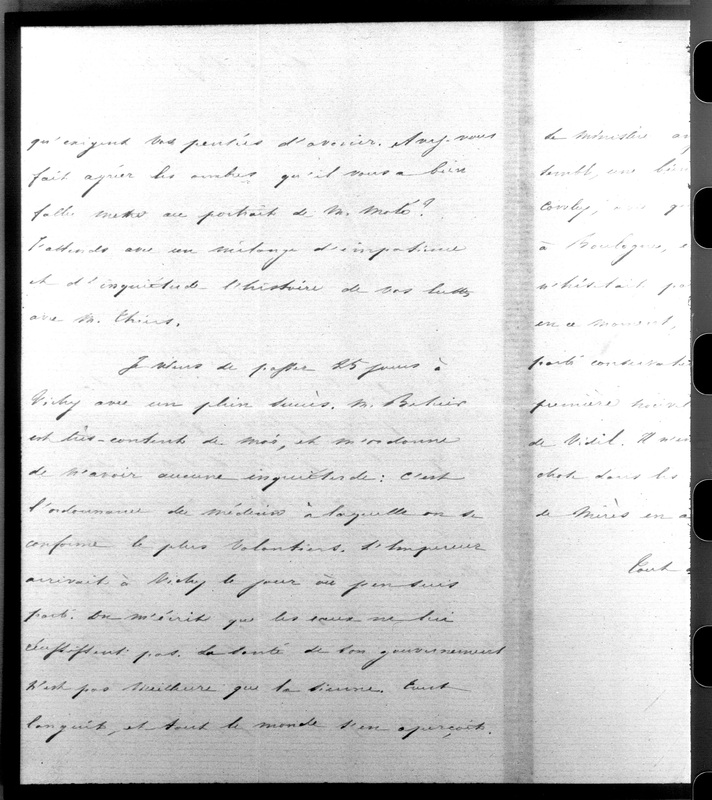 qu'exigent vos pensées d'avenir. Avez-vous
fait agréer les ombres qu'il vous a bien
fallu mettre au portrait de M. Molé ?
J'attends avec un mélange d'impatience
et d'inquiétude l'histoire de vos luttes
avec M. Thiers.
Je viens de passer 25 jours à
Vichy avec un plein succès. M.
est très-content de moi, et m'ordonne
de n'avoir aucune inquiétude : c'est
l'ordonnance des médecins à laquelle on se
conforme le plus volontiers. L'Empereur
arrivait à Vichy le jour où j'en suis
parti. On m'écrit que les eaux ne lui
réussissent pas. La santé de son gouvernement
n'est pas meilleure que la sienne. Tout
languit, et tout le monde s'en aperçoit.
de ministère
une
Cowley,
à Boulogne,
n'hésitait
en ce moment,
parti
première
de Vidil. Il
dans les
de Mirès en
Tout